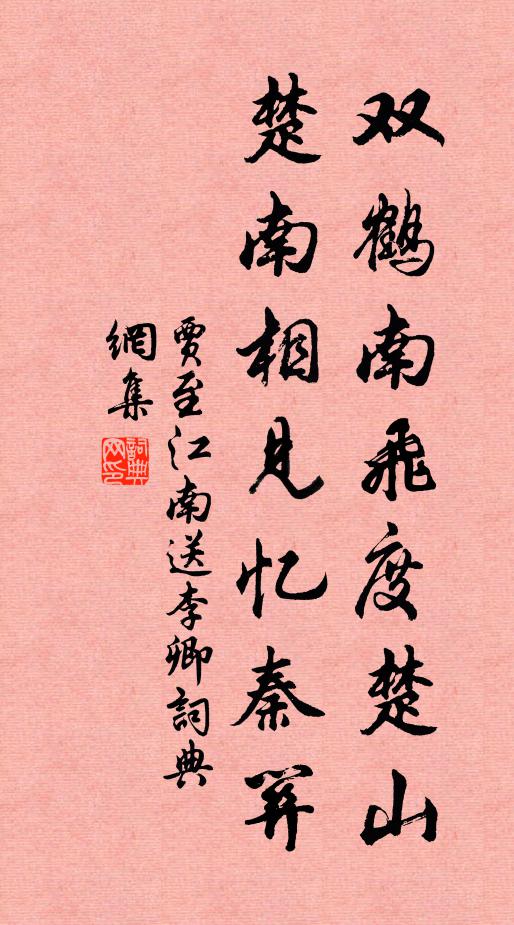 双鹤南飞度楚山
楚南相见忆秦关
贾至江南送李卿詞典
網集
詞典网印